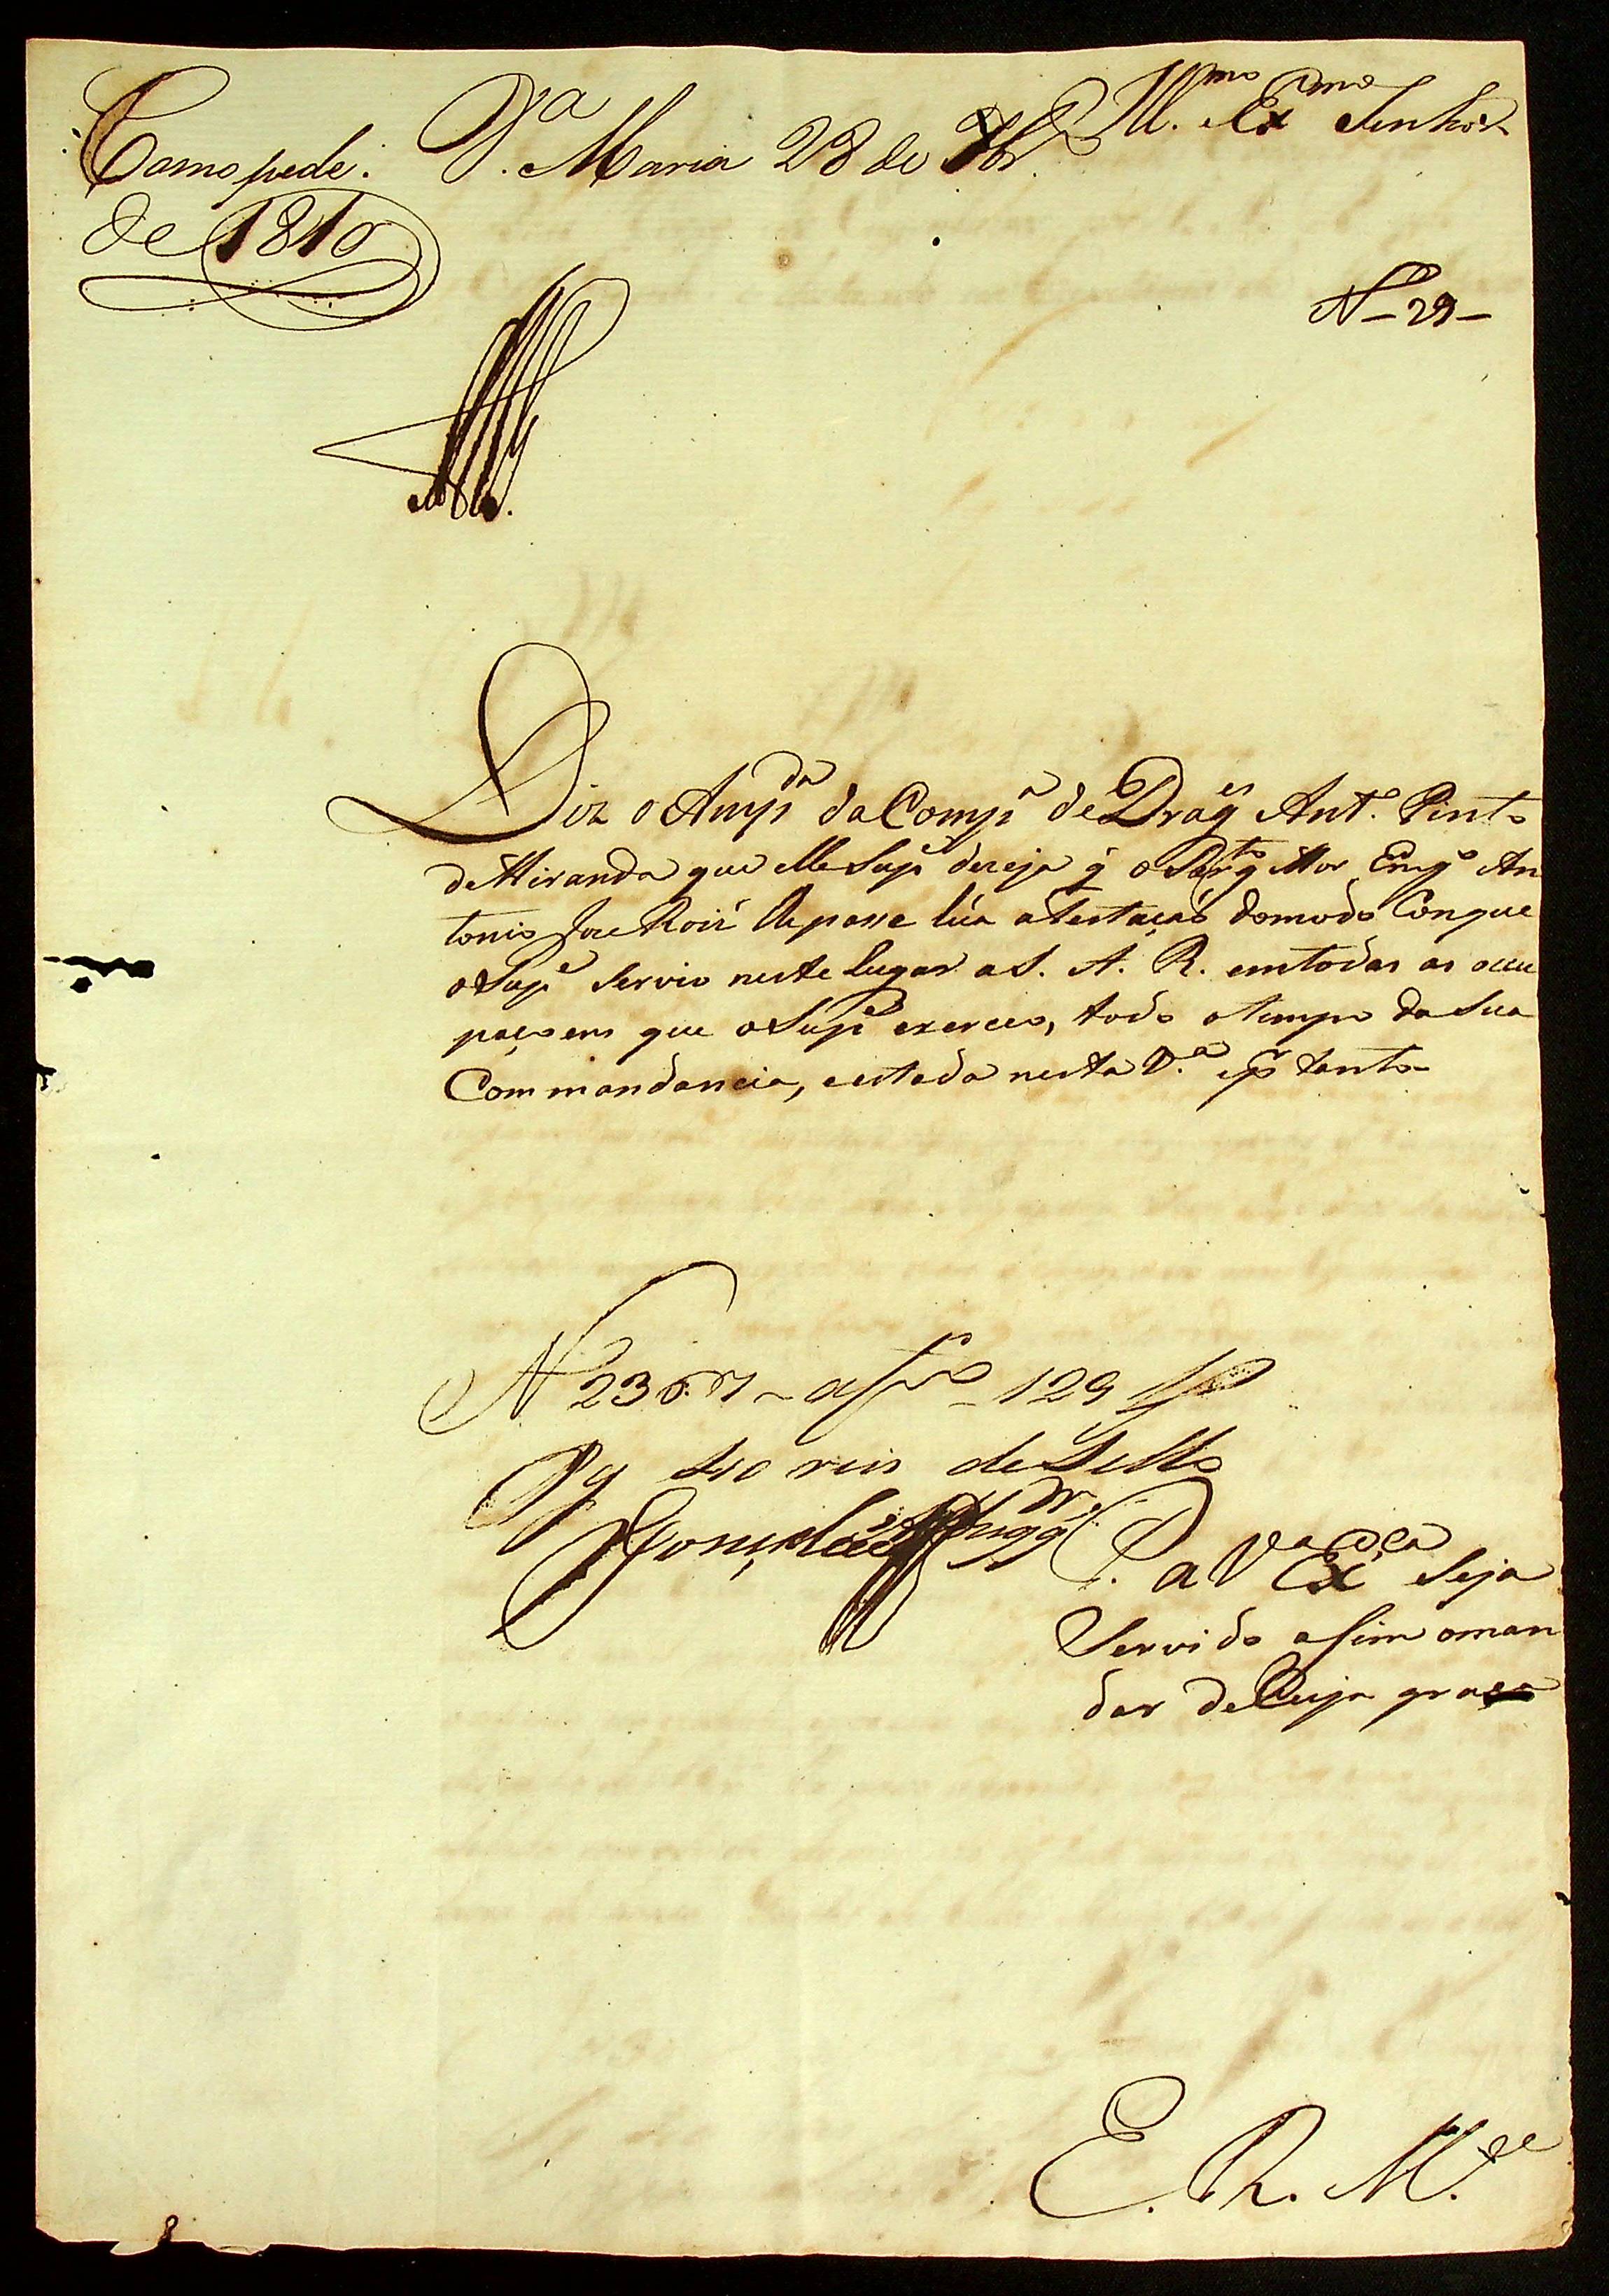 Como pede. V.ª Maria 28 de 7br.º
de 1810
Ill.mo Ex.mo Senhor
N.º – 29 –
Diz o Anspda da Compª de Drages Ant.º Pinto
de Miranda que elle Supe dezeja q̃ o Sargto Mor Engº An
tonio Joze Roiz lhe passe hũa atestação do modo Com que
o Supe Servio neste lugar a S. A. R. em todas as ocu
paçoens que o Supe exerceo, todo o tempo da Sua
Commandancia, e estada nesta V.ª e p.r tanto
N.º 2367 – a f – 129
Pg 40 reis de Sello
P. a V.ª Ex.ça Seja
Servido asim o man
dar de Cuja graça
E. R. M.ce